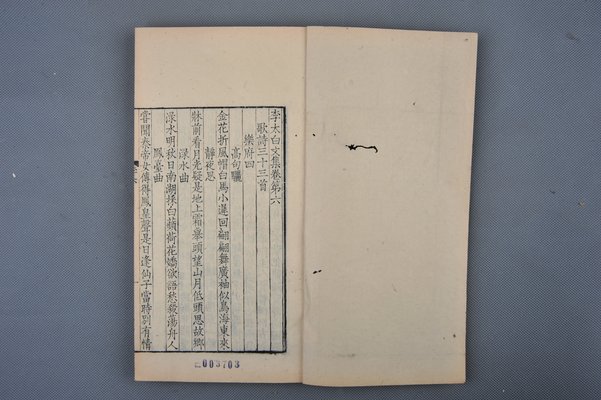 李太白文集卷第六
歌詩三十三首
樂府四
高句驪
金花折風帽白馬小遲回翩翩舞廣袖似鳥海東來
靜夜思
牀前看月光疑是地上霜舉頭望山月低頭思故鄉
淥水曲
淥水明秋日南湖採白蘋荷花嬌欲語愁殺蕩舟人
鳳臺曲
嘗聞秦帝女傳得鳳皇聲是日逢仙子當時別有情
003703